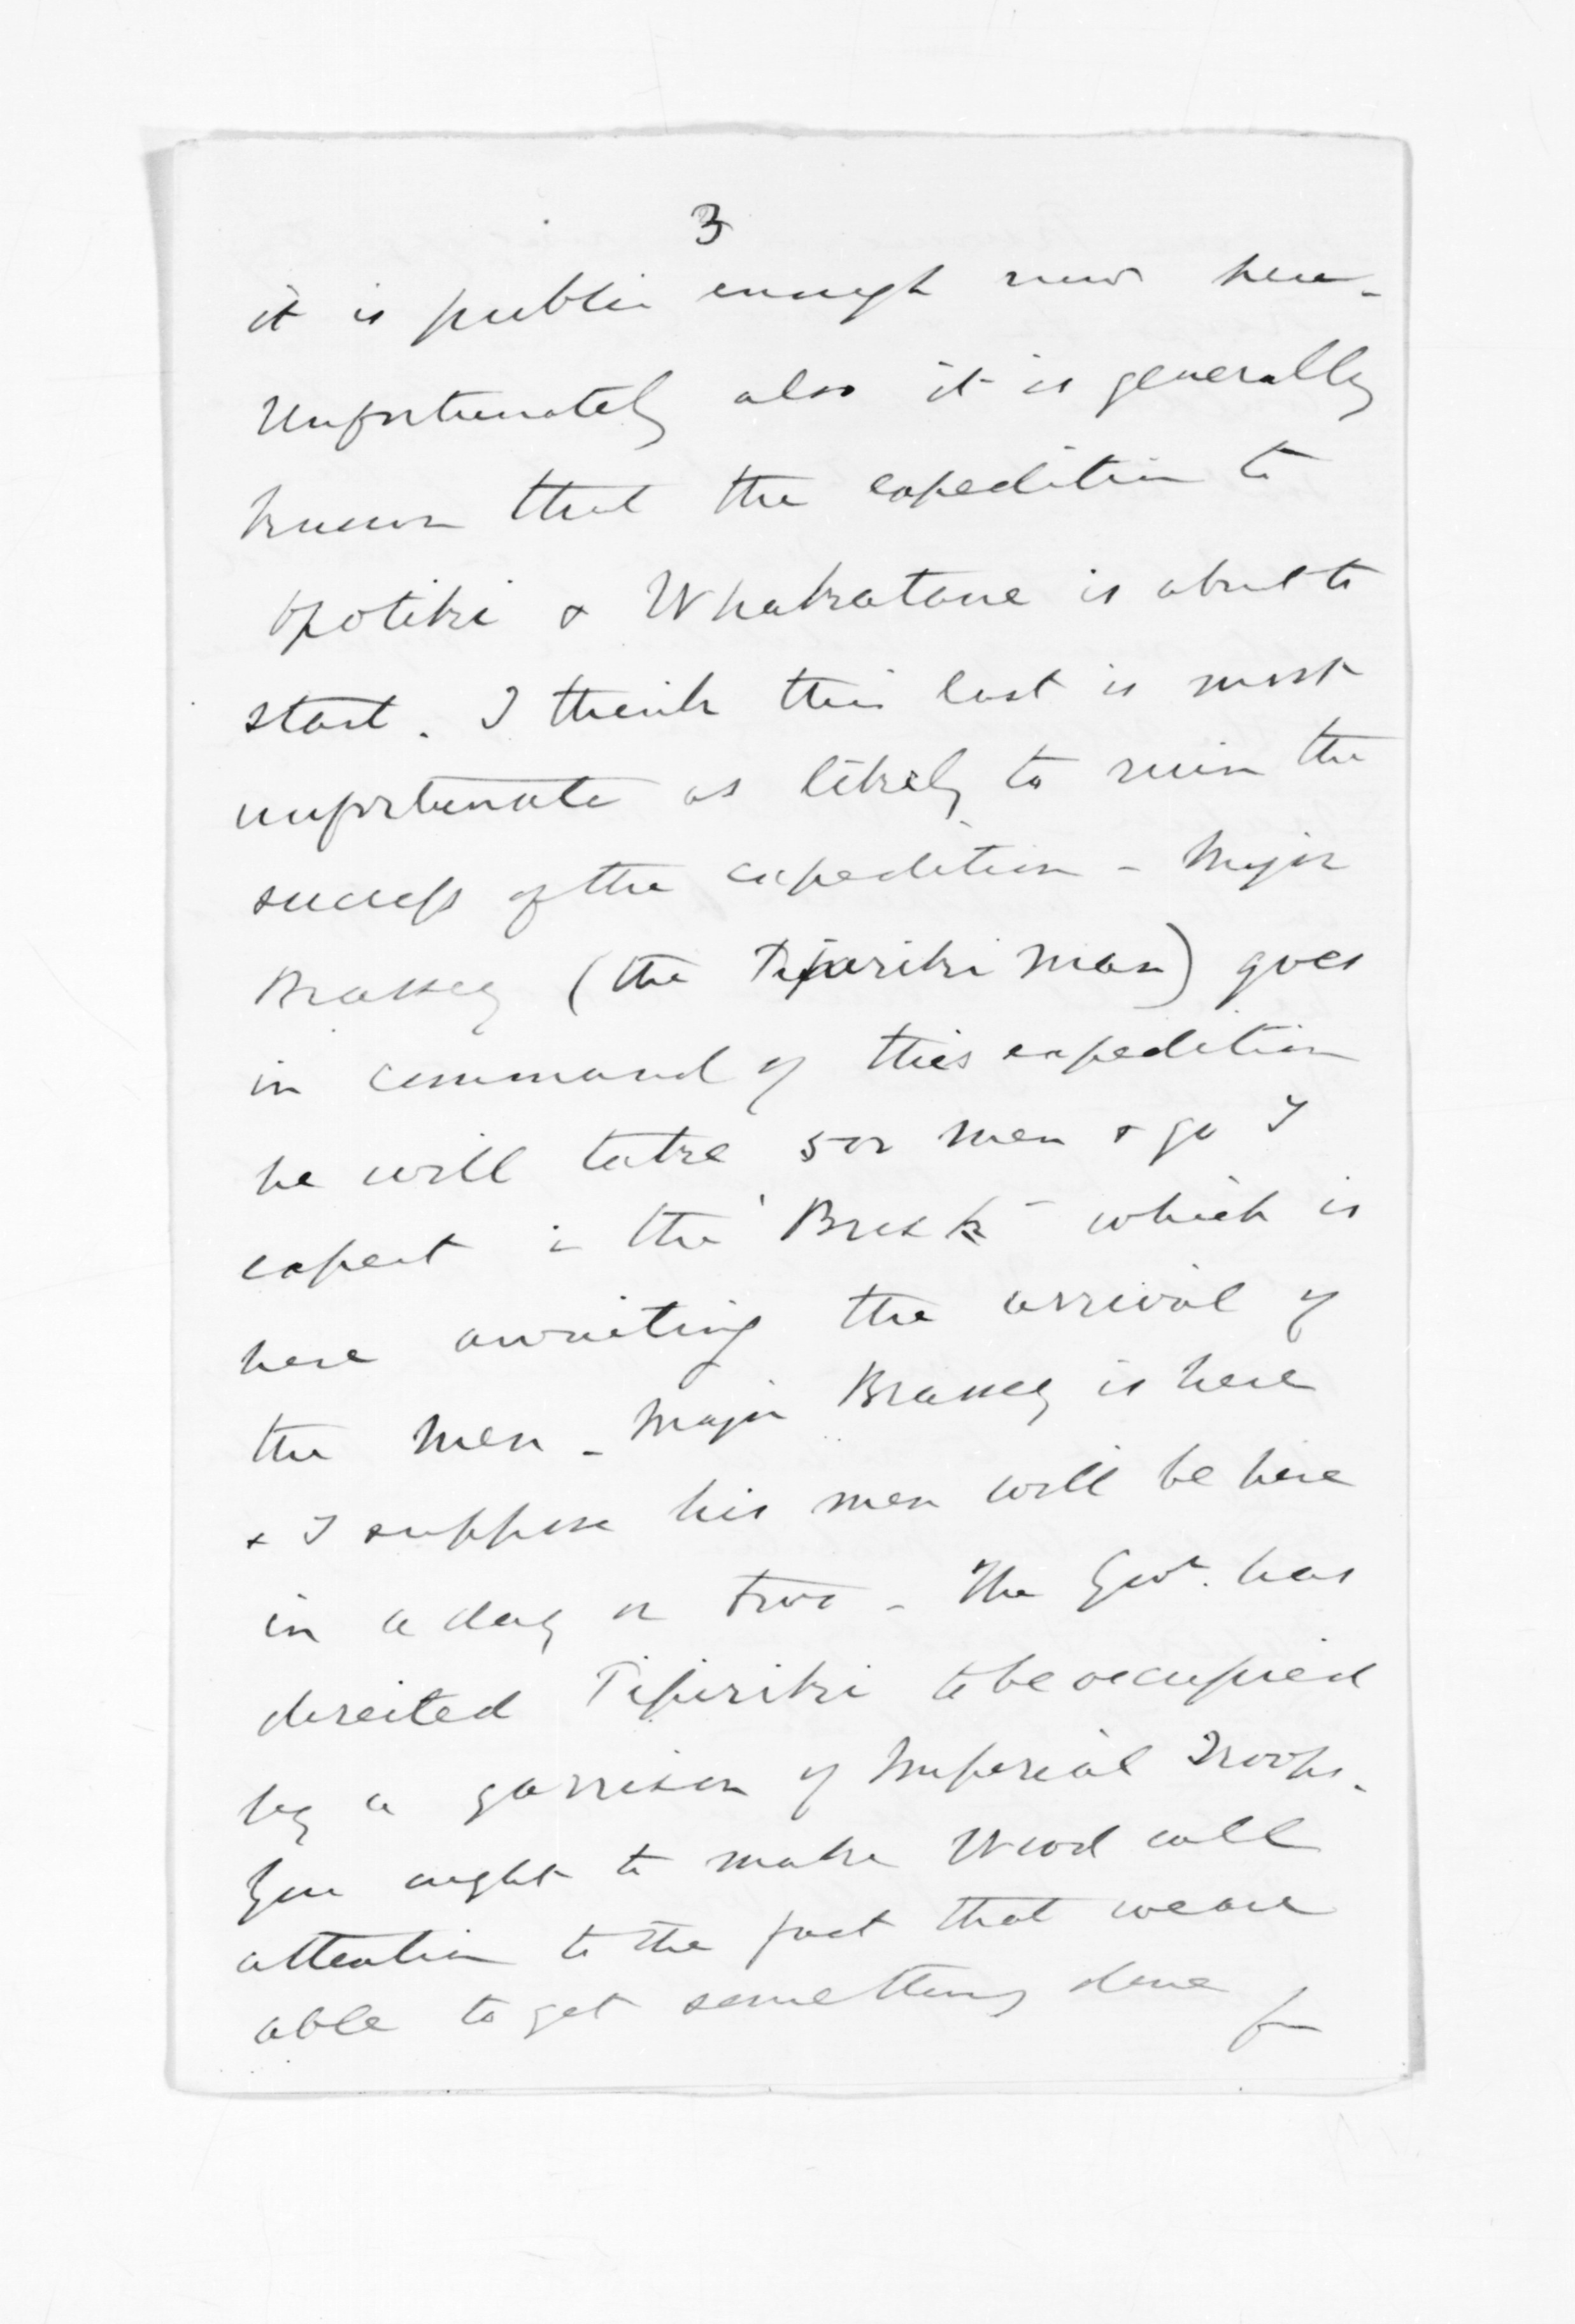 3
it is public enough now here -
Unfortunately also it is generally
known that the expedition to
Opotiki & Whakatane is about to
start. I think this last is most
unfortunate as likely to ruin the
success of the expedition - Major
Brassey (the Pipiriki man) goes
in command of this expedition
he will take 500 men & go I
expect in the "Brisk" which is
here awaiting the arrival of
the men - Major Brassey is here
& I suppose his men will be here
in a day or two - The Govt. has
directed Pipiriki to be occupied
by a garrison of Imperial Troops.
You ought to make Wood call
attention to the fact that we are
able to get something done for